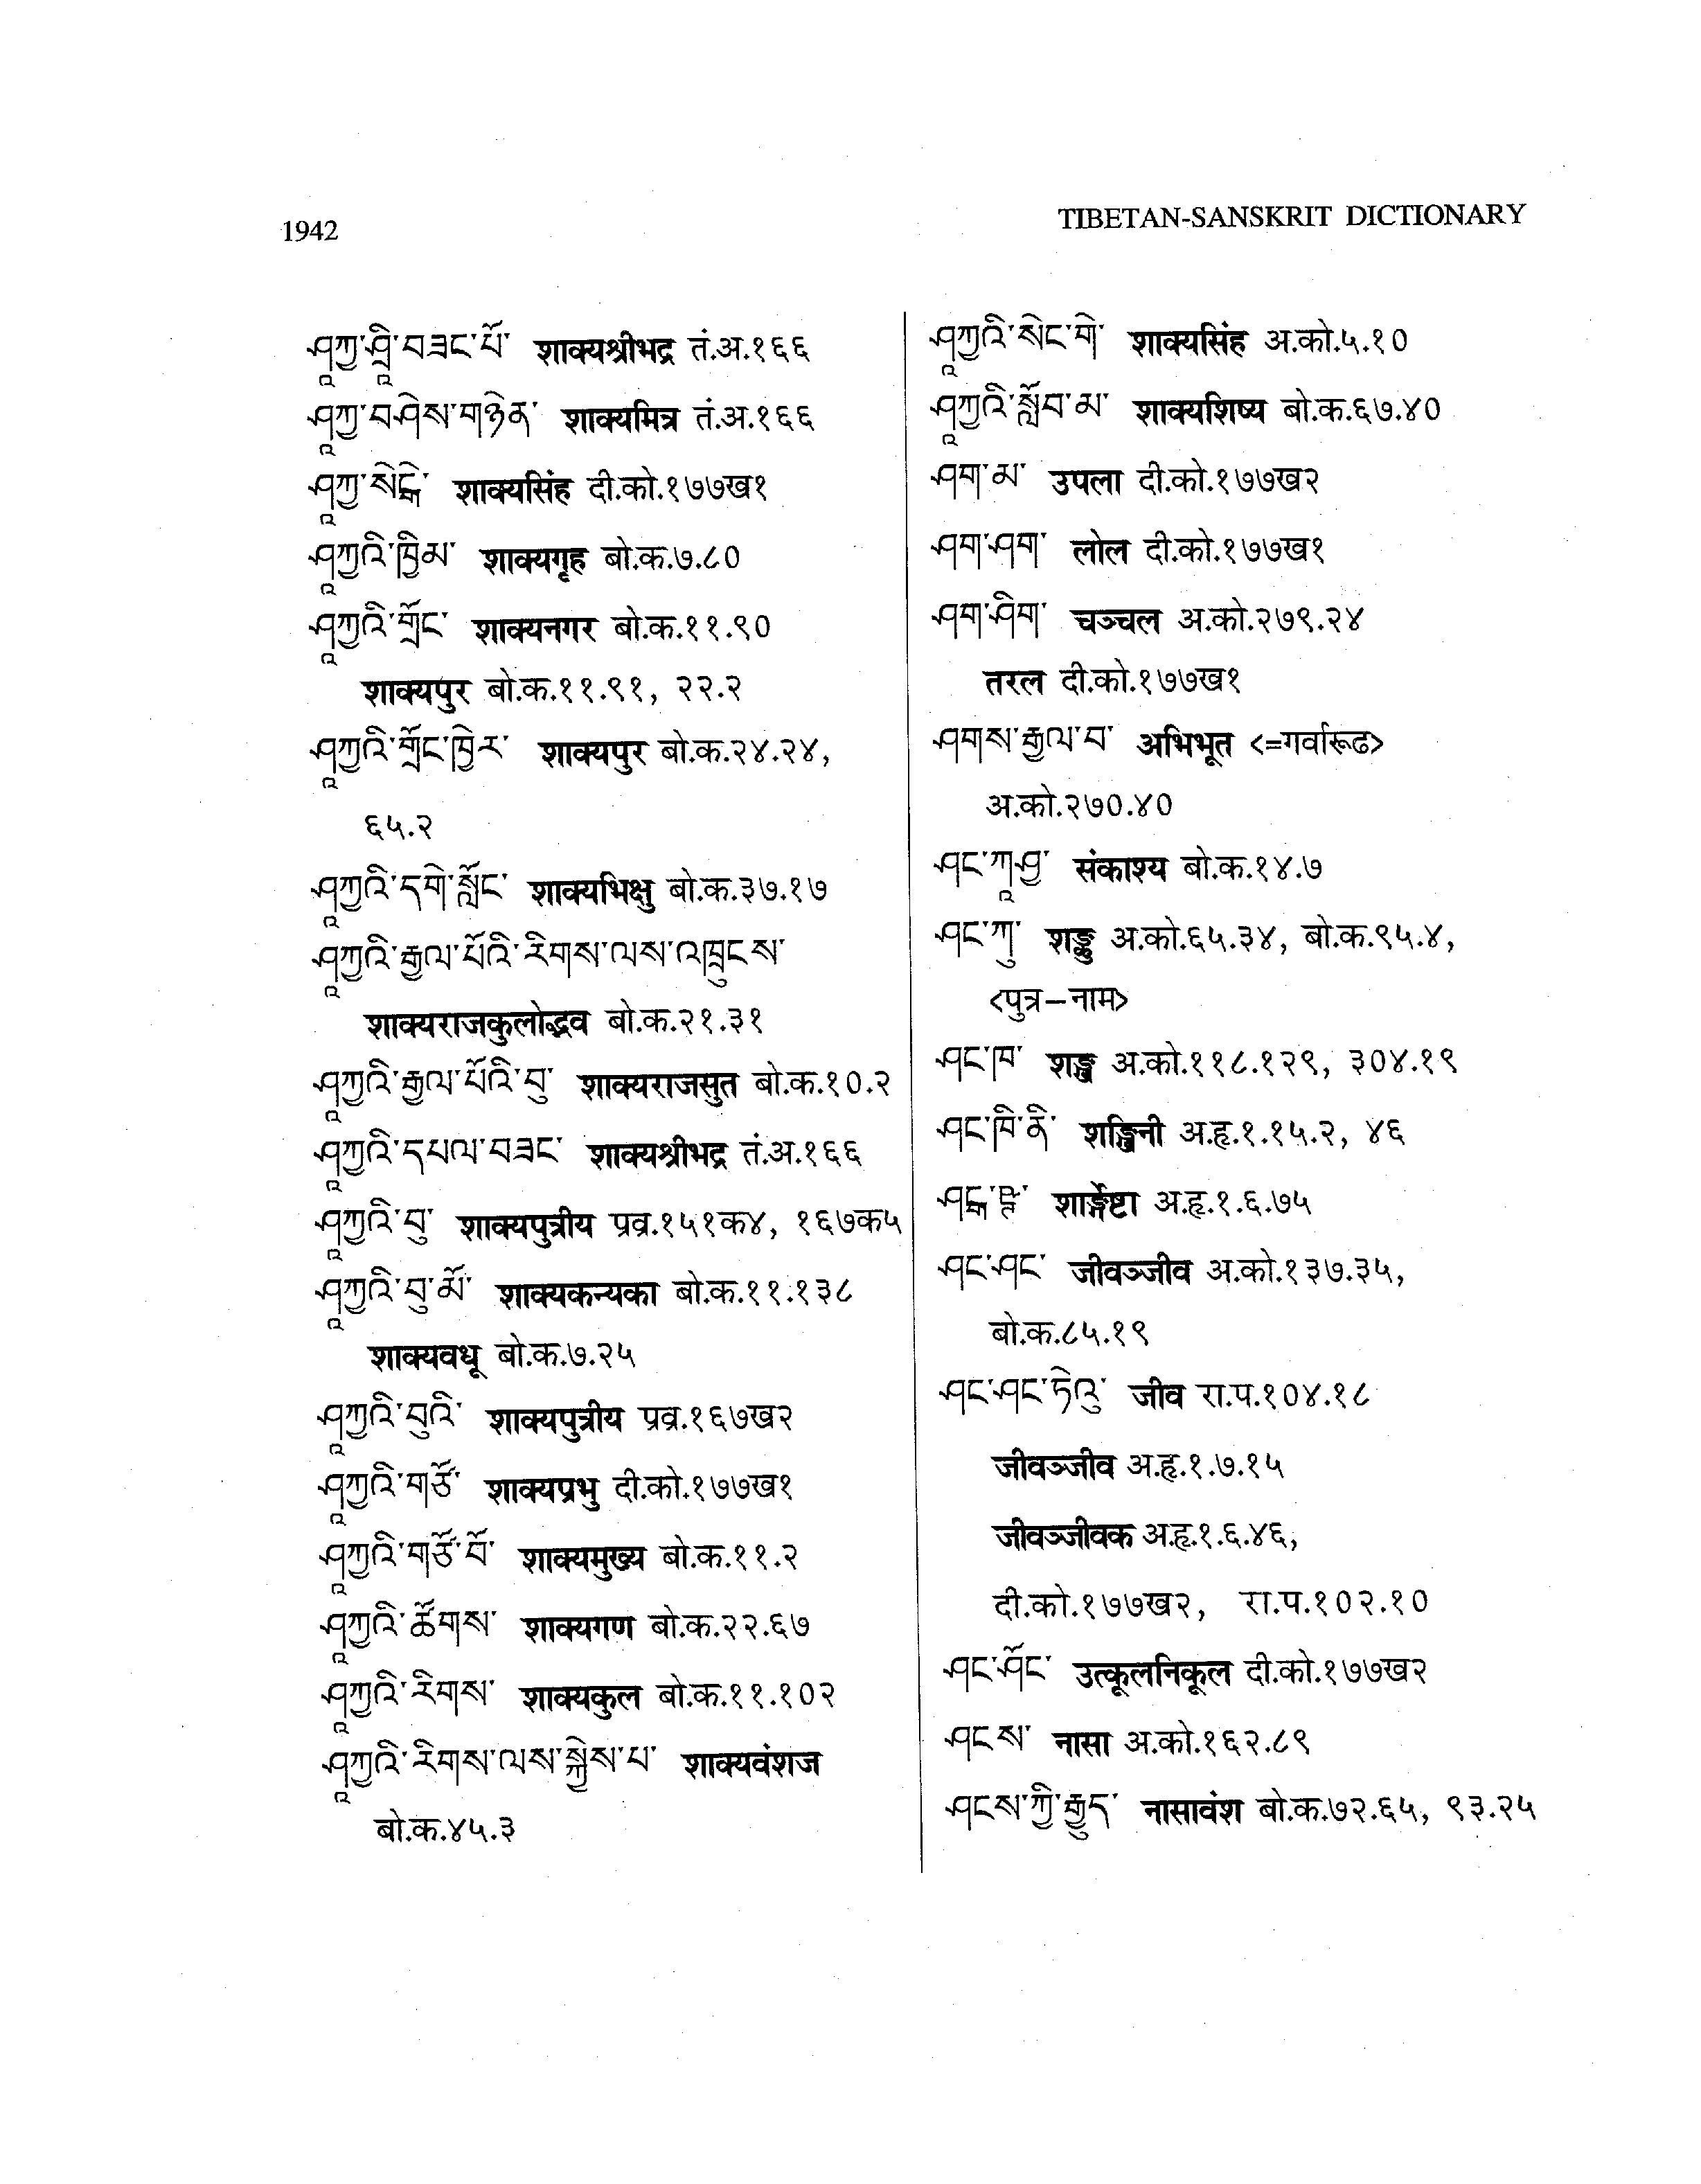 1942
TIBETAN-SANSKRIT DICTIONARY
ཤཱཀྱ་ཤྲཱི་བཟང་པོ་ शाक्यश्रीभद्र तं.अ.१६६
ཤཱཀྱ་བཤེས་གཉེན་ शाक्यमित्र तं.अ.१६६
ཤཱཀྱ་སེངྒེ་ शाक्यसिंह दी.को.१७७ख१
ཤཱཀྱའི་ཁྱིམ་ शाक्यगृह बो.क.७.८०
ཤཱཀྱའི་གྲོང་ शाक्यनगर बो.क.११.९०
शाक्यपुर बो.क.११.९१, २२.२
ཤཱཀྱའི་གྲོང་ཁྱེར་ शाक्यपुर बो.क.२४.२४,
६५.२
ཤཱཀྱའི་དགེ་སློང་ शाक्यभिक्षु बो.क.३७.१७
ཤཱཀྱའི་རྒྱལ་པོའི་རིགས་ལས་འཁྲུངས་
शाक्यराजकुलोद्भव बो.क.२१.३१
ཤཱཀྱའི་རྒྱལ་པོའི་བུ་ शाक्यराजसुत बो.क.१०.२
ཤཱཀྱའི་དཔལ་བཟང་ शाक्यश्रीभद्र तं.अ.१६६
ཤཱཀྱའི་བུ་ शाक्यपुत्रीय प्रव्र.१५१क४, १६७क५
ཤཱཀྱའི་བུ་མོ་ शाक्यकन्यका बो.क.११.१३८
शाक्यवधू बो.क.७.२५
ཤཱཀྱའི་བུའི་ शाक्यपुत्रीय प्रव्र.१६७ख२
ཤཱཀྱའི་གཙོ་ शाक्यप्रभु दी.को.१७७ख१
ཤཱཀྱའི་གཙོ་བོ་ शाक्यमुख्य बो.क.११.२
ཤཱཀྱའི་ཚོགས་ शाक्यगण बो.क.२२.६७
ཤཱཀྱའི་རིགས་ शाक्यकुल बो.क.११.१०२
ཤཱཀྱའི་རིགས་ལས་སྐྱེས་པ་ शाक्यवंशज
बो.क.४५.३
ཤཱཀྱའི་སེང་གེ་ शाक्यसिंह अ.को.५.१०
ཤཱཀྱའི་སློབ་མ་ शाक्यशिष्य बो.क.६७.४०
ཤག་མ་ उपला दी.को.१७७ख२
ཤག་ཤག་ लोल दी.को.१७७ख१
ཤག་ཤིག་ चञ्चल अ.को.२७९.२४
तरल दी.को.१७७ख१
ཤགས་རྒྱལ་བ་ अभिभूत <=गर्वारूढ>
अ.को.२७०.४०
ཤང་ཀཱ་ཤྱ་ संकाश्य बो.क.१४.७
ཤང་ཀུ་ शङ्कु अ.को.६५.३४, बो.क.९५.४,
<पुत्र–नाम>
ཤང་ཁ་ शङ्ख अ.को.११८.१२९, ३०४.१९
ཤང་ཁི་ནི་ शङ्खिनी अ.हृ.१.१५.२, ४६
ཤངྒ་ཥྚ་ शार्ङ्गेष्टा अ.हृ.१.६.७५
ཤང་ཤང་ जीवञ्जीव अ.को.१३७.३५,
बो.क.८५.१९
ཤང་ཤང་ཏེའུ་ जीव रा.प.१०४.१८
जीवञ्जीव अ.हृ.१.७.१५
जीवञ्जीवक अ.हृ.१.६.४६,
दी.को.१७७ख२, रा.प.१०२.१०
ཤང་ཤོང་ उत्कूलनिकूल दी.को.१७७ख२
ཤངས་ नासा अ.को.१६२.८९
ཤངས་ཀྱི་རྒྱུད་ नासावंश बो.क.७२.६५, ९३.२५